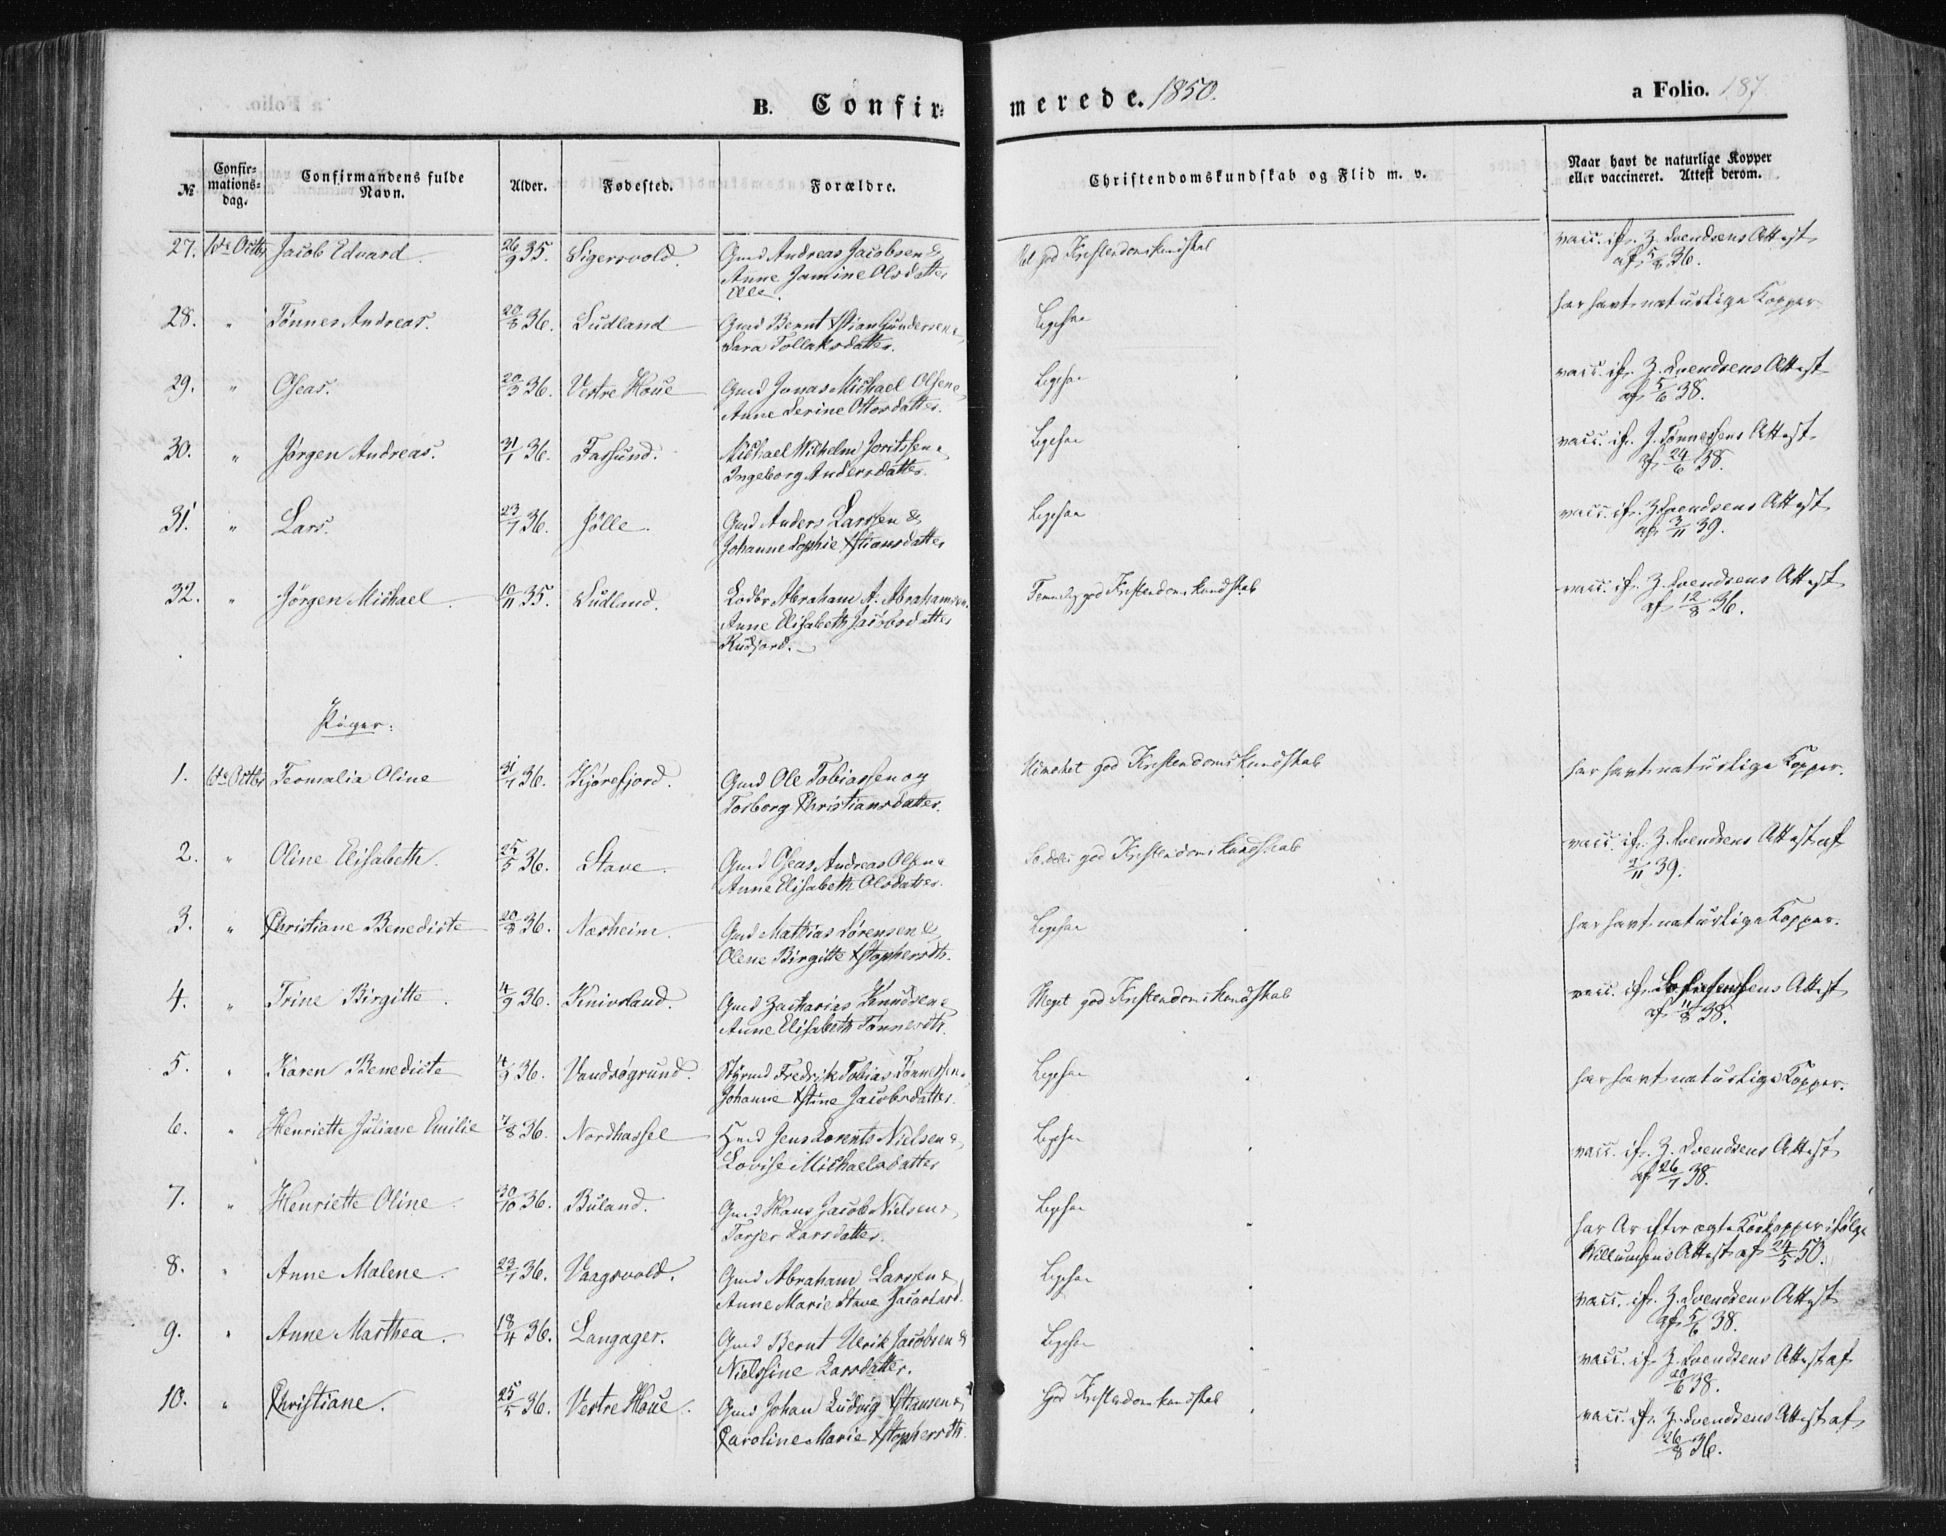 B. Confir=
merede. 1850.
a Folio. 187
№
Confir-
mations-
dag.
Confirmandens fulde
Navn.
Alder.
Fødested.
Forældre.
Christendomskundskab og Flid m. v.
Naar havt de naturlige Kopper
eller vaccineret. Attest derom.
27. 6te Octbr Jacob Edvard. 26/9 35. Sigersvold. Gmd Andreas Jacobsen &
Anne Jamine Olsdatter
god Kristendomskundskab
vacc. if. Z. Svendsens Attest
af 5/8 36.
28. " Tønnes Andreas. 20/8 36. Sudland Gmd Bernt Xstian Gundersen &
Sara Tollaksdatter.
Ligesaa
har havt naturlige Kopper
29. " Oseas. 20/3 36. Vestre Houe Gmd Jonas Michael Olsen &
Anne Serine Ottosdatter.
Ligesaa
vacc. if. Z. Svendsens Attest
af 5/6 38.
30. " Jørgen Andreas. 31/1 36. Farsund. Michael Wilhelm &
Ingeborg Andersdatter
Ligesaa
vacc. if. J. Tønnessens Attest
af 24/6 38.
31. " Lars. 23/7 36. Jølle. Gmd Anders Larssen &
Johanne Sophie Xstiansdatter
Ligesaa
vacc. if. Z. Svendsens Attest
af 3/11 39.
32. " Jørgen Michael. 10/11 35. Sudland. Lodsr Abraham A. Abrahamsen
Anne Elisabeth Jacobsdatter
Rudjord.
Temmelig god Kristendomskundskab
vacc. if. Z. Svendsens Attest
af 12/8 36.
Piger:
1. 6te Octbr Teomalia Oline 31/7 36. Kjørefjord. Gmd Ole Tobiassen og
Torborg Christiansdatter.
Udmærket god Kristendomskundskab
har havt naturlige Kopper.
2. " Oline Elisabeth. 25/5 36. Stave. Gmd Oseas Andreas Olsen &
Anne Elisabeth Olsdatter.
god Kristendomskundskab
vacc. if. Z. Svendsens Attest af
/11 39.
3. " Christiane Benedicte 20/8 36. Næsheim. Gmd Mathias Sørensen &
Olene Birgitte Xstophersdtr.
Ligesaa
har havt naturlige Kopper.
4. " Trine Birgitte. 4/9 36. Knivsland. Gmd Zacharias Knudsen &
Anne Elisabeth Tønnesdtr.
Meget god Kristendomskundskab
vacc. if. Attest
af 11/8 38.
5. " Karen Benedicte 4/9 36. Vandsøgrund. Styrmd Fredrik Tobias Tønnessen &
Johanne Xstine Jacobsdatter.
Ligesaa
har havt naturlige Kopper.
6. " Henriette Juliane Emilie 7/8 36. Nordhassel Hmd Jens Lorents Nielsen &
Lovise Michaelsdatter
Ligesaa
vacc. if. Z. Svendsens Attest
af 26/7 38.
7. " Henriette Oline. 30/10 36. Buland. Gmd Hans Jacob Nielsen &
Torjer Larsdatter.
Ligesaa
har Ar efter ægte Kokopper ifølge
Willumsens Attest af 24/5 50.
8. " Anne Malene. 23/7 36. Vaagsvold. Gmd Abraham Larssen &
Anne Marie Stave
Ligesaa
vacc. if. Z. Svendsens Attest
af 5/6 38.
9. " Anne Marthea. 18/4 36. Langager. Gmd Bernt Ulrik Jacobsen &
Nielssine Larsdatter.
Ligesaa
vacc. if. Z. Svendsens Attest af
20/6 38.
10. " Christiane. 25/5 36. Vestre Houe. Gmd Johan Ludvig Xstiansen &
Caroline Marie Xstophersdtr.
God Kristendomskundskab
vacc. if. Z. Svendsens Attest af
26/8 36.